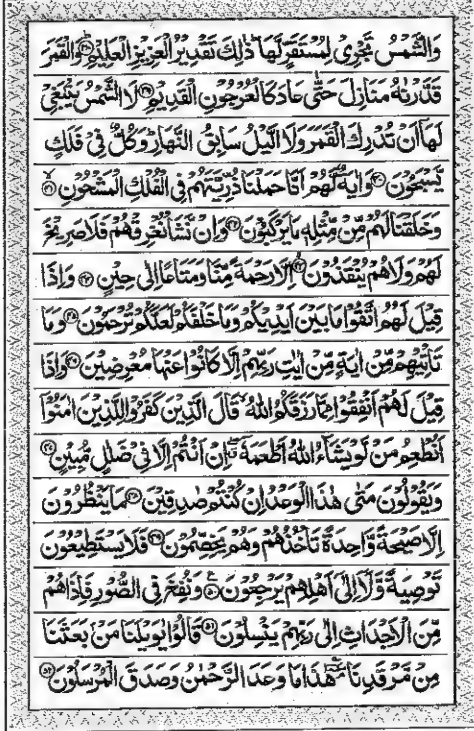 وَالشَّمْسُ تَجْرِىْ لِمُسْتَقَرٍّ لَّهَا ؕ ذٰلِكَ تَقْدِيْرُ الْعَزِيْزِ الْعَلِيْمِ ﴿۳۸﴾ وَالْقَمَرَ
قَدَّرْنٰهُ مَنَازِلَ حَتّٰى عَادَ كَالْعُرْجُوْنِ الْقَدِيْمِ ﴿۳۹﴾ لَا الشَّمْسُ يَنْۢبَغِىْ
لَهَاۤ اَنْ تُدْرِكَ الْقَمَرَ وَلَا الَّيْلُ سَابِقُ النَّهَارِ ؕ وَكُلٌّ فِىْ فَلَكٍ
يَّسْبَحُوْنَ ﴿۴۰﴾ وَاٰيَةٌ لَّهُمْ اَنَّا حَمَلْنَا ذُرِّيَّتَهُمْ فِى الْفُلْكِ الْمَشْحُوْنِ ﴿۴۱﴾
وَخَلَقْنَا لَهُمْ مِّنْ مِّثْلِهٖ مَا يَرْكَبُوْنَ ﴿۴۲﴾ وَاِنْ نَّشَاْ نُغْرِقْهُمْ فَلَا صَرِيْخَ
لَهُمْ وَلَا هُمْ يُنْقَذُوْنَ ﴿۴۳﴾ اِلَّا رَحْمَةً مِّنَّا وَمَتَاعًا اِلٰى حِيْنٍ ﴿۴۴﴾ وَاِذَا
قِيْلَ لَهُمُ اتَّقُوْا مَا بَيْنَ اَيْدِيْكُمْ وَمَا خَلْفَكُمْ لَعَلَّكُمْ تُرْحَمُوْنَ ﴿۴۵﴾ وَمَا
تَاْتِيْهِمْ مِّنْ اٰيَةٍ مِّنْ اٰيٰتِ رَبِّهِمْ اِلَّا كَانُوْا عَنْهَا مُعْرِضِيْنَ ﴿۴۶﴾ وَاِذَا
قِيْلَ لَهُمْ اَنْفِقُوْا مِمَّا رَزَقَكُمُ اللّٰهُ ۙ قَالَ الَّذِيْنَ كَفَرُوْا لِلَّذِيْنَ اٰمَنُوْۤا
اَنُطْعِمُ مَنْ لَّوْ يَشَآءُ اللّٰهُ اَطْعَمَهٗۤ ۖ اِنْ اَنْتُمْ اِلَّا فِىْ ضَلٰلٍ مُّبِيْنٍ ﴿۴۷﴾
وَيَقُوْلُوْنَ مَتٰى هٰذَا الْوَعْدُ اِنْ كُنْتُمْ صٰدِقِيْنَ ﴿۴۸﴾ مَا يَنْظُرُوْنَ
اِلَّا صَيْحَةً وَّاحِدَةً تَاْخُذُهُمْ وَهُمْ يَخِصِّمُوْنَ ﴿۴۹﴾ فَلَا يَسْتَطِيْعُوْنَ
تَوْصِيَةً وَّلَاۤ اِلٰۤى اَهْلِهِمْ يَرْجِعُوْنَ ﴿۵۰﴾ وَنُفِخَ فِى الصُّوْرِ فَاِذَا هُمْ
مِّنَ الْاَجْدَاثِ اِلٰى رَبِّهِمْ يَنْسِلُوْنَ ﴿۵۱﴾ قَالُوْا يٰوَيْلَنَا مَنْۢ بَعَثَنَا
مِنْ مَّرْقَدِنَا ۘ هٰذَا مَا وَعَدَ الرَّحْمٰنُ وَصَدَقَ الْمُرْسَلُوْنَ ﴿۵۲﴾